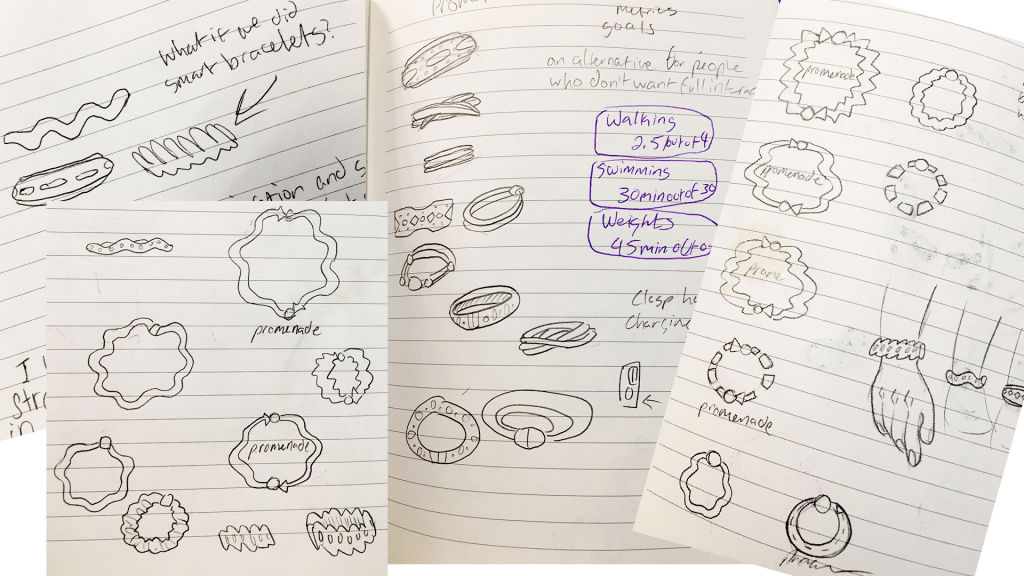 what if we did
smart bracelets?
and
I
in
promenade
promenade
metrics
goals
an alternative for people
who don't want full
Walking
2.5 out of 4
Swimming
30 min out of 30
Weights
45 min
Clasp
Charging
promenade
promenade
Prome
promenade